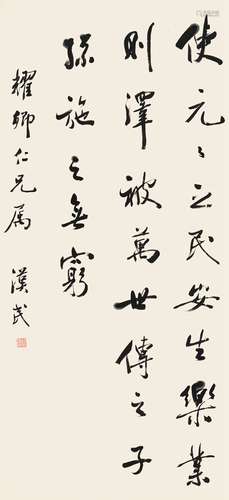 使元元之民安生樂業
則澤被萬世傳之子
孫施之無窮
耀卿仁兄属
漢民